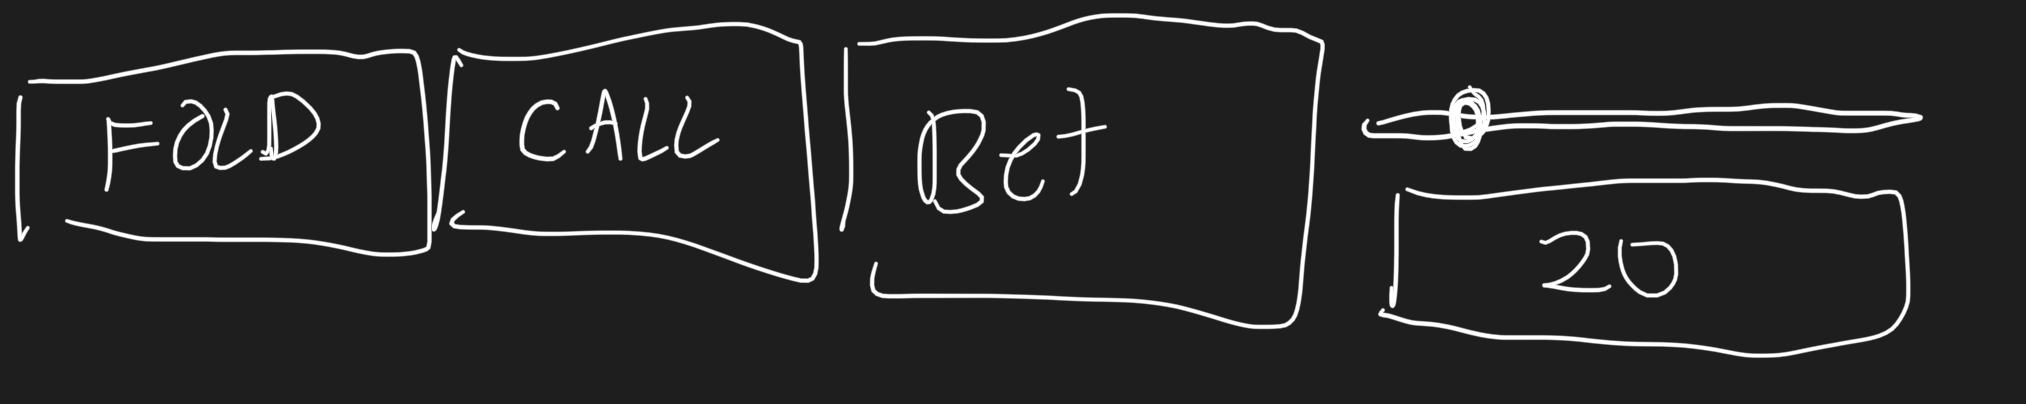 FOLD CALL Bet
20